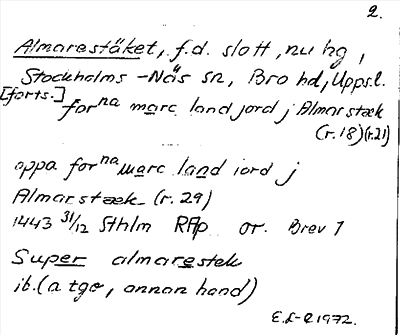 2.
Almarestäket, f.d. slott, nu hg,
Stockholms-Näs sn, Bro hd, Upps.l.
[forts.]
for na marc land jord j Almarstæk
(r.18)(r.21)
oppa for na marc land iord j
Almarstæk (r. 29)
1443 31/12 Sthlm RAp or. Brev 1
Super almarestek
ib. (a tgo, annan hand)
E.L-Q 1972.